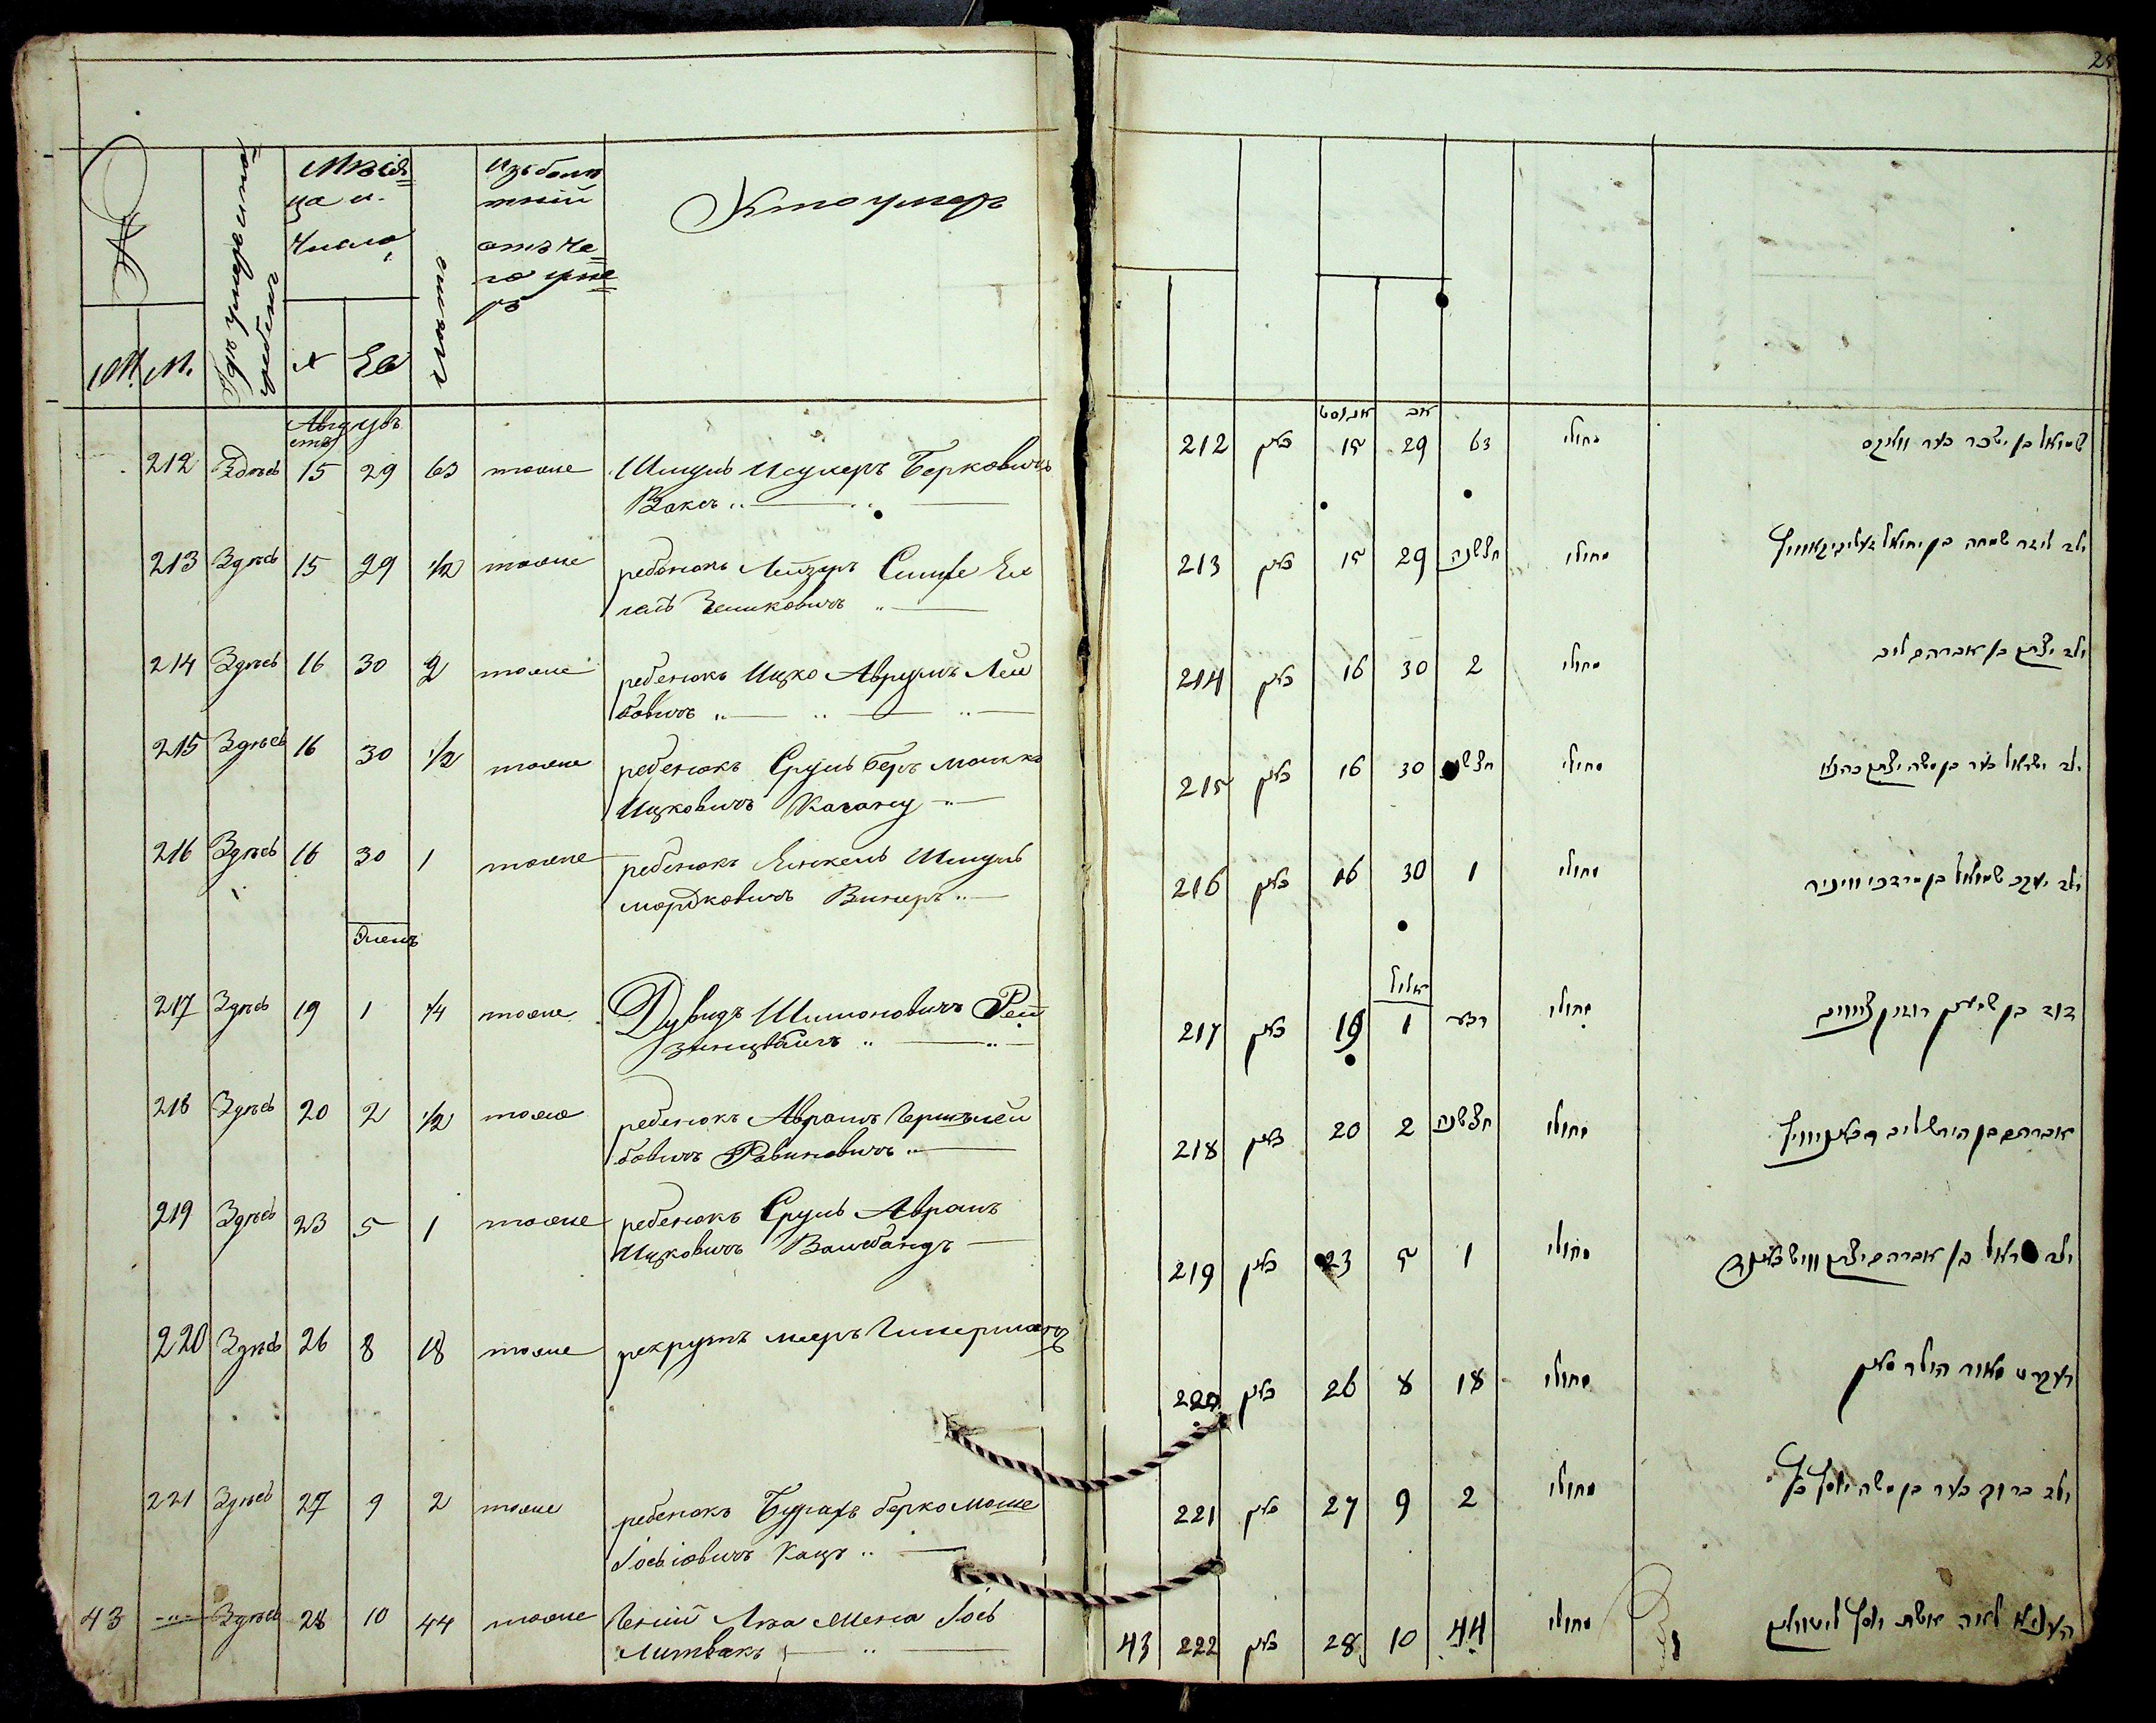 Гдѣ умеръ или
ребенкъ
Мѣся=
ца и
Число
лѣта
Изъ болѣ
тній
отъ че=
го уме=
ръ
Кто умеръ
М.
Х
Ев
Августъ
212 Здѣсь 15 29 63 тоже Шмуль Исухеръ Берковичъ
Ваксъ
213 Здѣсь 15 29 1/2 тоже ребенокъ Лейзеръ Симхе Ех
214 Здѣсь 16 30 2 тоже ребенокъ Ицко Аврумъ Лей
бовичъ
215 Здѣсь 16 30 1/2 тоже ребенокъ Сруль Беръ Мошко
Ицковичъ Кагану
216 Здѣсь 16 30 1 тоже ребенокъ Янкель Шмуль
Мордковичъ Винеръ
Элелъ
217 Здѣсь 19 1 1/4 тоже Дувидъ Шимоновичъ Рей
218 Здѣсь 20 2 1/2 тоже ребенокъ Аврамъ Гершълей
бовичъ Рабиновичъ
219 Здѣсь 23 5 1 тоже ребенокъ Сруль Аврамъ
Ицковичъ Вайсбандъ
220 Здѣсь 26 8 18 тоже рекрутъ Мееръ Гилерманъ
221 Здѣсь 27 9 2 тоже ребенокъ Бурахъ Берко Моше
Іосіовичъ Кацъ
43 Здѣсь 28 10 44 тоже Гений Лея Жена Іось
Литвакъ
25
אויגוסט אב
212 כאן 15 29 63 מחולי שמואל בן ישכר בער וואקס
213 כאן 15 29 חצי שנה מחולי ילד ליזר שמחה בן יחיאל
214 כאן 16 30 2 מחולי ילד יצחק בן אברהם ליב
215 כאן 16 30 חצי מחולי ילד ישראל בער בן משה יצחק כהנא
216 כאן 16 30 1 מחולי ילד יעקב שמואל בן מרדכי ווינער
אלול
217 כאן 19 1 רבע מחולי דוד בן שמעון
218 כאן 20 2 חצי שנה מחולי אברהם בן הירש ליב ראבינאוויץ
219 כאן 23 5 1 מחולי ילד ישראל בן אברהם יצחק ווייסבאנד
220 כאן 26 8 18 מחולי רעקרוט מאיר הילרמאן
221 כאן 27 9 2 מחולי ילד ברוך בער בן משה יוסף כץ
43 222 כאן 28 10 44 מחולי העניא לאה אשת יוסף ליטוואק